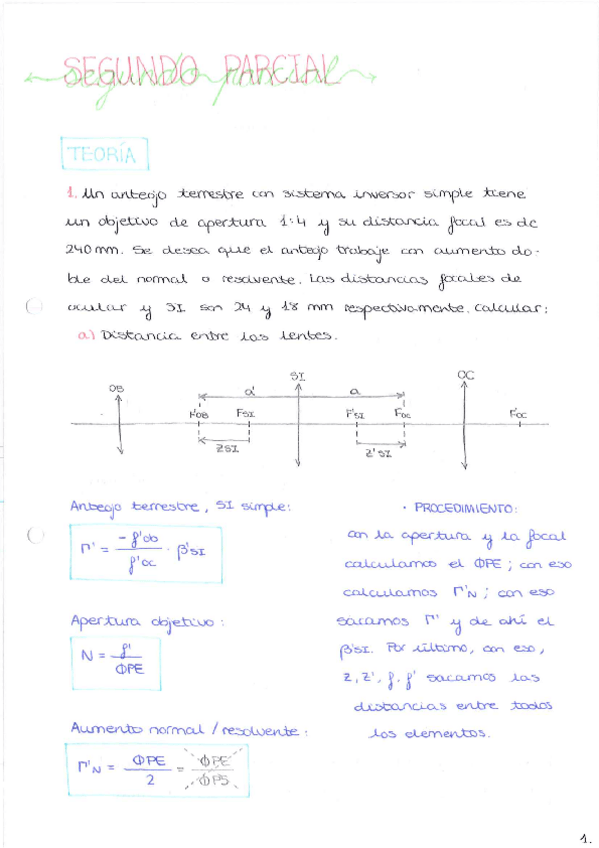 SEGUNDO PARCIAL
segundo parcial
TEORÍA
1. Un anteojo terrestre con sistema inversor simple tiene
un objetivo de apertura 1:4 y su distancia focal es de
240 mm. Se desea que el anteojo trabaje con aumento do-
ble del normal o resolvente. Las distancias focales de
ocular y SI son 24 y 18 mm respectivamente. Calcular:
a) Distancia entre las lentes.
OB SI OC
a' a
F'OB FSI F'SI FOC F'OC
ZSI Z'SI
Anteojo terrestre, SI simple:
Γ' = -f'ob / f'oc · β'SI
Apertura objetivo:
N = f' / ΦPE
Aumento normal / resolvente:
Γ'N = ΦPE / 2 = ΦPE / ΦPS
· PROCEDIMIENTO:
con la apertura y la focal
calculamos el ΦPE; con eso
calculamos Γ'N; con eso
sacamos Γ' y de ahí el
β'SI. Por último, con eso,
z, z', f, f' sacamos las
distancias entre todos
los elementos.
1.